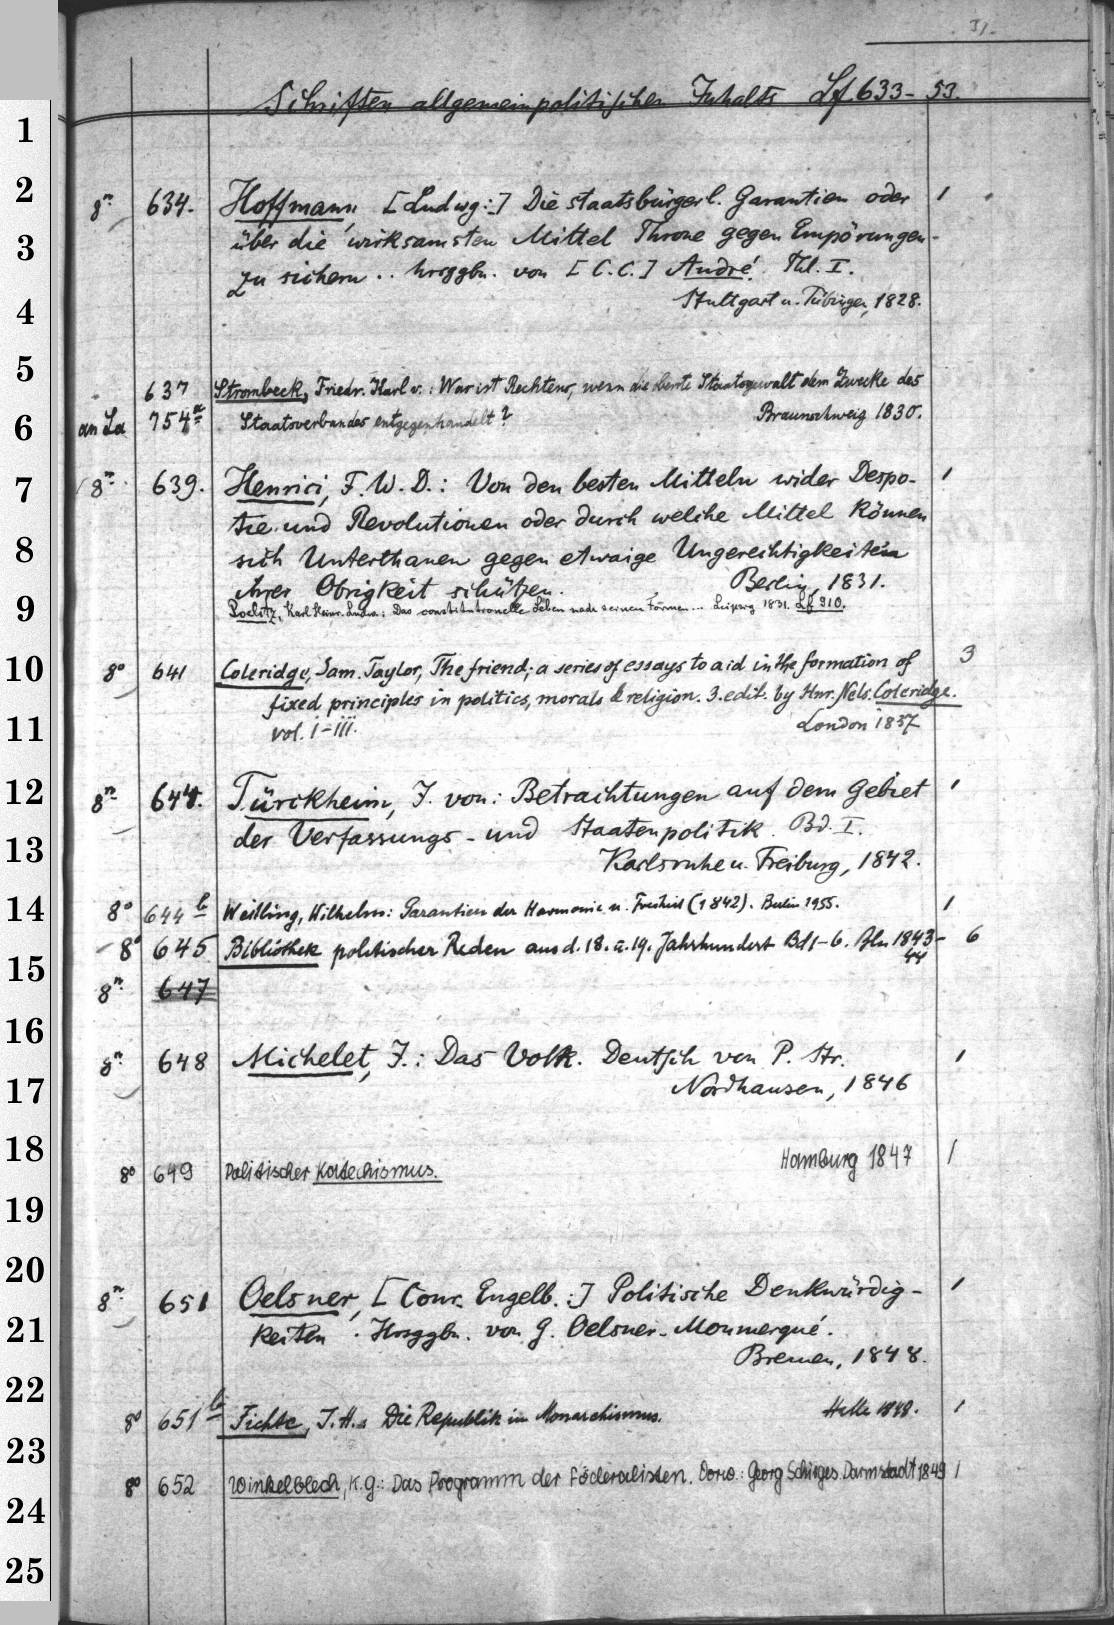 31.
Schriften allgemeinpolitischen Inhalts Lf. 633-53.
8º 634. Hoffmann, [Ludwig:] Die staatsbürgerl. Garantien oder 1
über die wirksamsten Mittel Throne gegen Empörungen
zu sichern .. hrsggbn. von [C.C.] André. Thl. I.
Stuttgart u. Tübingen, 1828.
637 Strombeck, Friedr. Karl v.: Was ist Rechtens, wenn die oberste Staatsgewalt dem Zwecke des
an La 754ª Staatsverbandes entgegenhandelt? Braunschweig 1830.
8º 639. Henrici, F. W. D.: Von den besten Mitteln wider Despo- 1
tie und Revolutionen oder durch welche Mittel können
sich Unterthanen gegen etwaige Ungerechtigkeiten
ihrer Obrigkeit schützen. Berlin, 1831.
Poelitz, Karl Heinr. Ludw.: Das constitutionelle Leben nach seinen Formen... Leipzig 1831. Lf 910.
8º 641 Coleridge, Sam. Taylor, The friend; a series of essays to aid in the formation of 3
fixed principles in politics, morals & religion. 3. edit. by Hnr. Nels. Coleridge.
vol. I-III. London 1837
8º 644. Türckheim, J. von: Betrachtungen auf dem Gebiet 1
der Verfassungs- und Staatenpolitik. Bd. I.
Karlsruhe u. Freiburg, 1842.
8º 644 b Weitling, Wilhelm: Garantien der Harmonie u. Freiheit (1842). Berlin 1955. 1
8º 645 Bibliothek politischer Reden aus d. 18. u. 19. Jahrhundert Bd 1-6. Bln 1843- 6
44
8º 647
8º 648 Michelet, J.: Das Volk. Deutsch von P. Str. 1
Nordhausen, 1846
8º 649 Politischer Katechismus. Hamburg 1847 1
8º 651 Oelsner, [Conr. Engelb.:] Politische Denkwürdig- 1
keiten. Hrsggbn. von G. Oelsner-Monmerqué.
Bremen, 1848.
8º 651 b Fichte, J. H.: Die Republik im Monarchismus. Halle 1848. 1
8º 652 Winkelblech, K. G.: Das Programm der Föderalisten. Vorw.: Georg Schirges. Darmstadt 1849 1
1
2
3
4
5
6
7
8
9
10
11
12
13
14
15
16
17
18
19
20
21
22
23
24
25